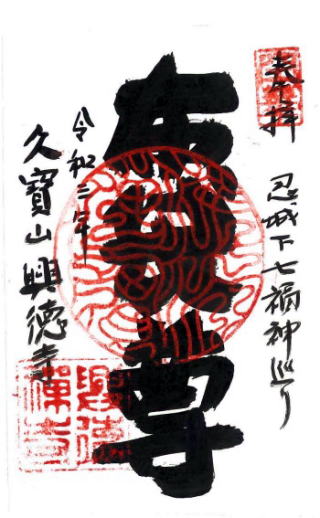 奉拝
忍城下七福神巡り
布袋尊
令和三年
久寶山興徳寺
興徳禅寺